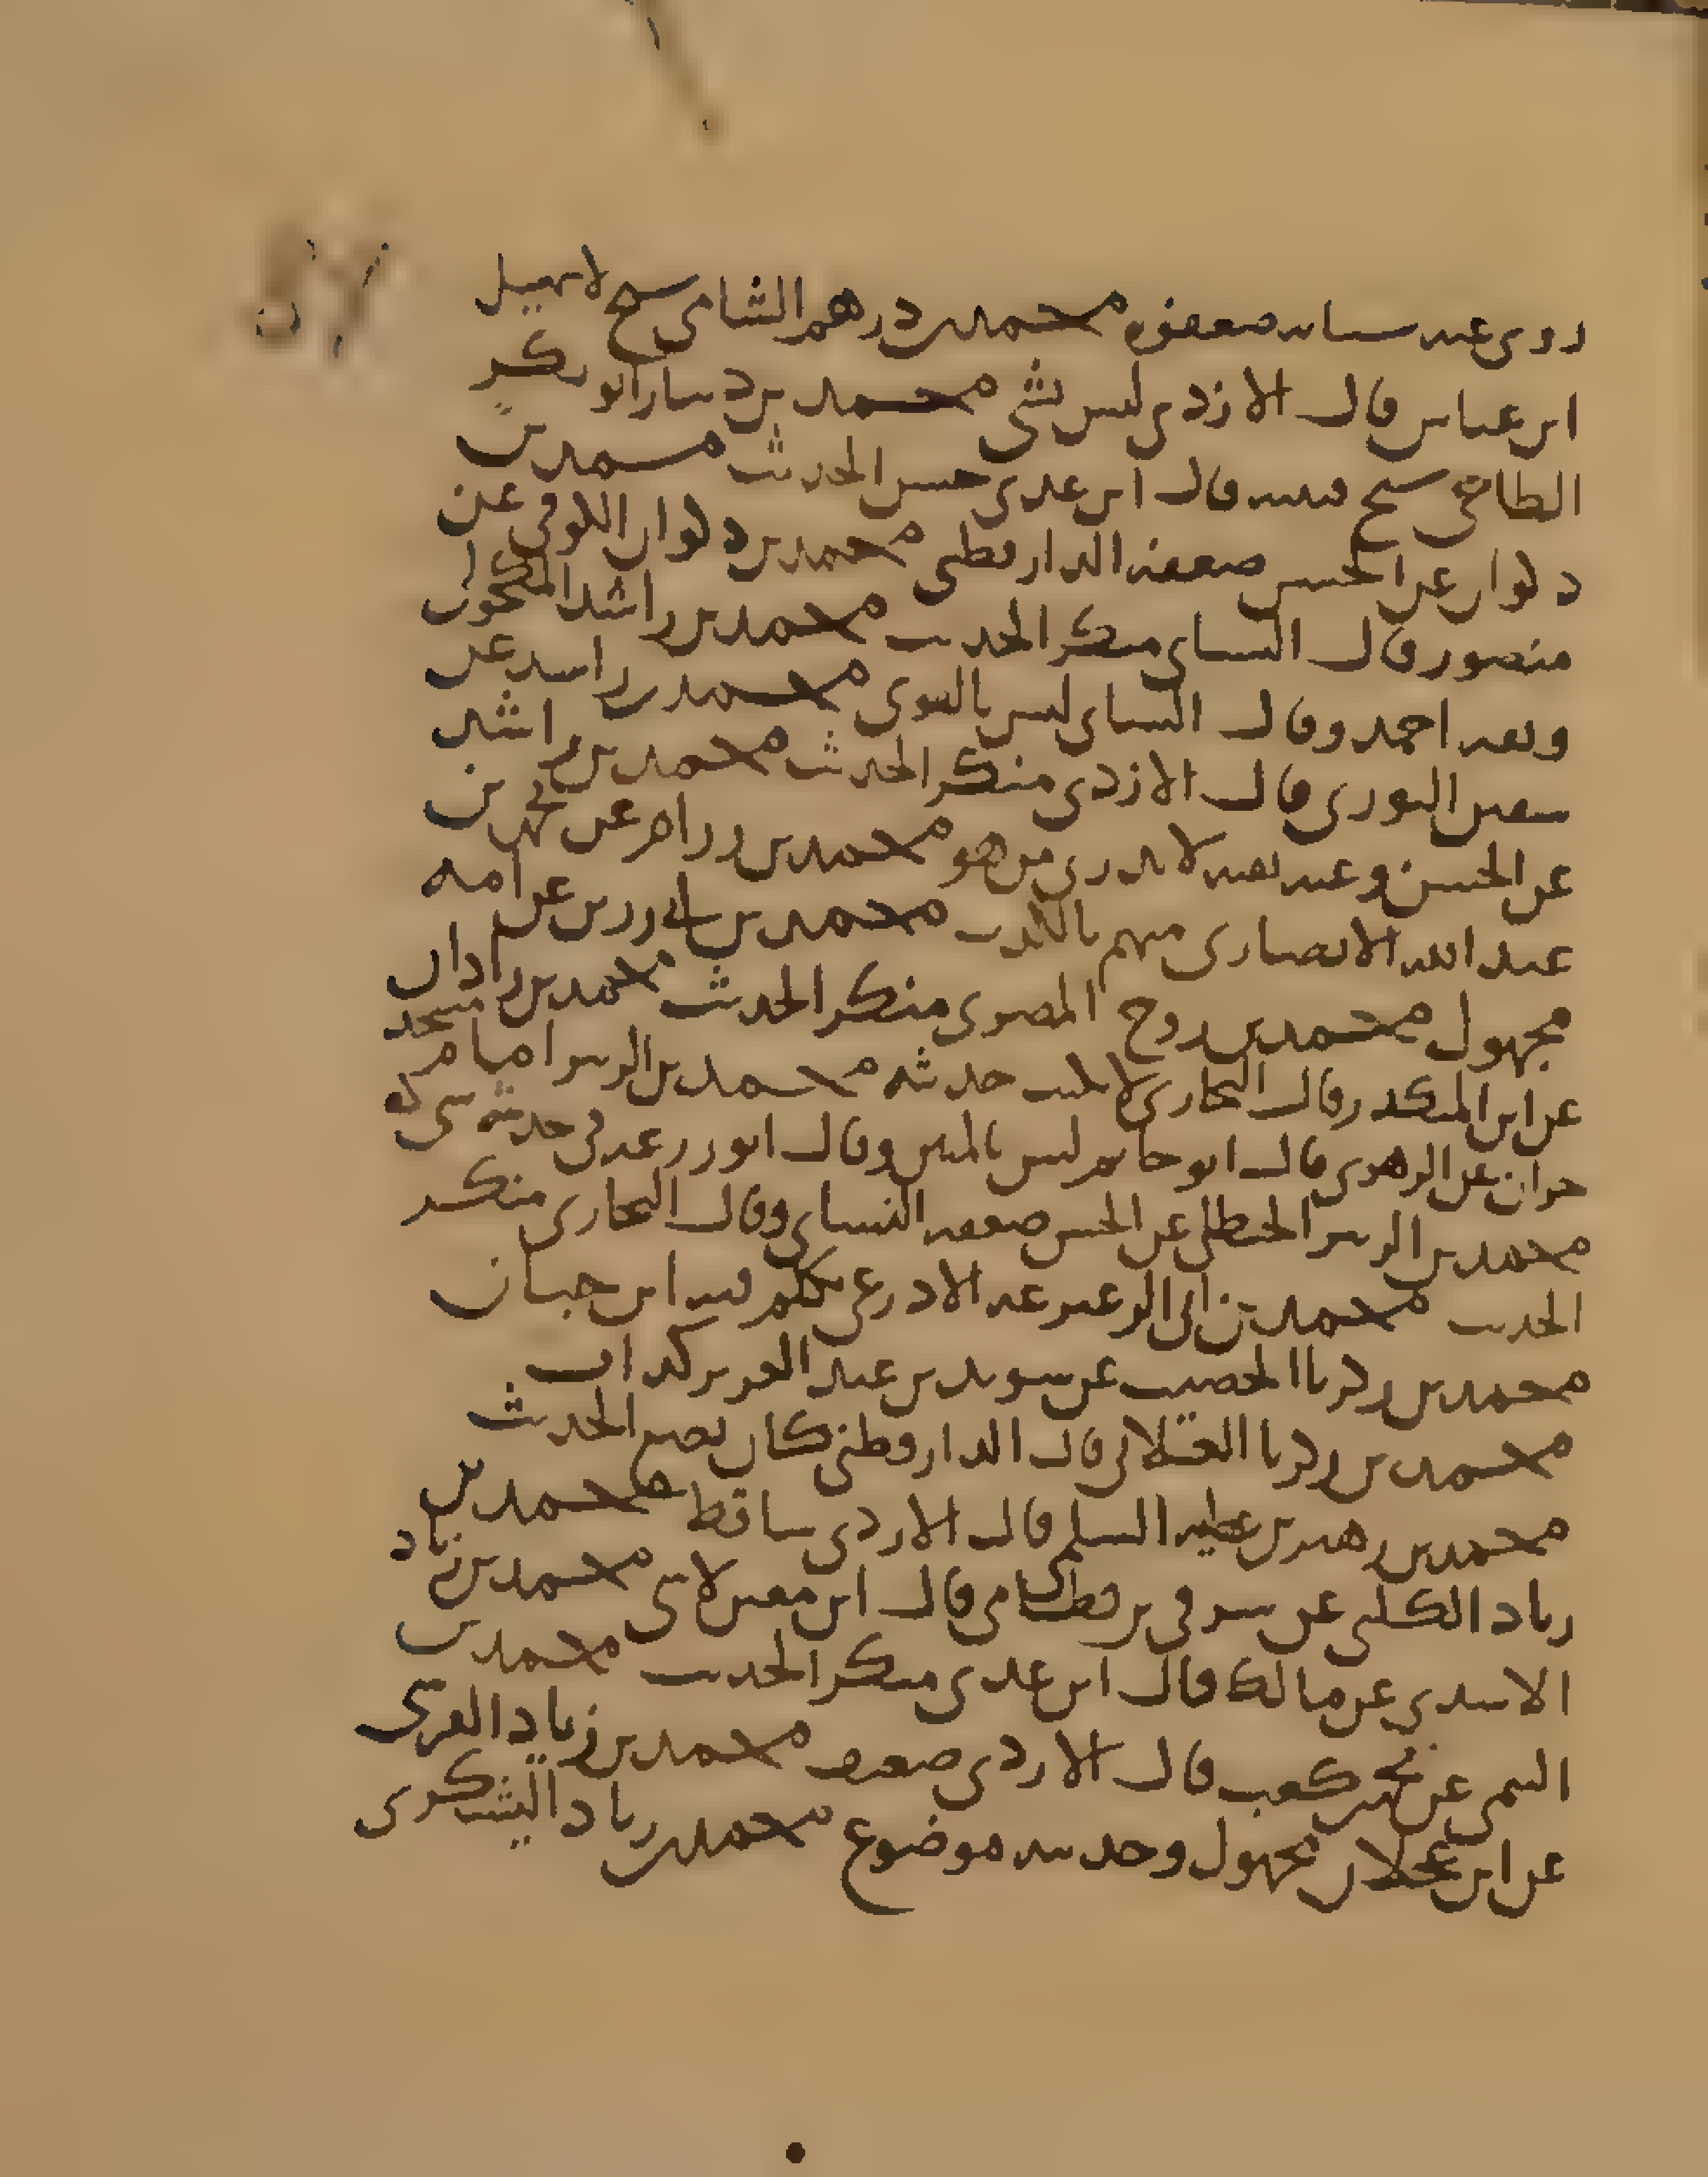 روى عنه شبابه ضعفوه محمد بن درهم الشامي شيخ لاسمعيل
ابن عياش قال الازدي ليس بشي محمد بن دينار ابو بكر
الطاحي شيخ قتيبه قال ابن عدي حسن الحديث محمد بن
ذكوان عن الحسن ضعفه الدارقطني محمد بن ذكوان الكوفي عن
منصور قال النساي منكر الحديث محمد بن راشد المكحولي
وثقه احمد وقال النساي ليس بالقوي محمد بن راشد عن
سفين الثوري قال الازدي منكر الحديث محمد بن راشد
عن الحسن وعنه بقيه لا يدرى من هو محمد بن زاهر عن محمد بن
عبد الله الانصاري متهم بالكذب محمد بن ابي رزين عن امه
مجهول محمد بن روح المصري منكر الحديث محمد بن زاذان
عن ابن المنكدر قال البخاري لا يكتب حديثه محمد بن الزبير امام مسجد
حران عن الزهري قال ابو حاتم ليس بالمتين وقال ابو زرعه في حديثه شي
محمد بن الزبير الحنظلي عن الحسن ضعفه النساي وقال البخاري منكر
الحديث محمد بن ابي الزعيزعه الاذرعي تكلم فيه ابن حبان
محمد بن زكريا الخصيب عن سويد بن عبد العزيز كذاب
محمد بن زكريا الغلابي قال الدارقطني كان يضع الحديث
محمد بن زهير بن عطيه السلمي قال الازدي ساقط محمد بن
زياد الكلبي عن شرقي بن قطامي قال ابن معين لا شي محمد بن زياد
الاسدي عن مالك قال ابن عدي منكر الحديث محمد بن
التيمي عن محمد بن كعب قال الازدي ضعيف محمد بن زياد
عن ابن عجلان مجهول وحديثه موضوع محمد بن زياد اليشكري